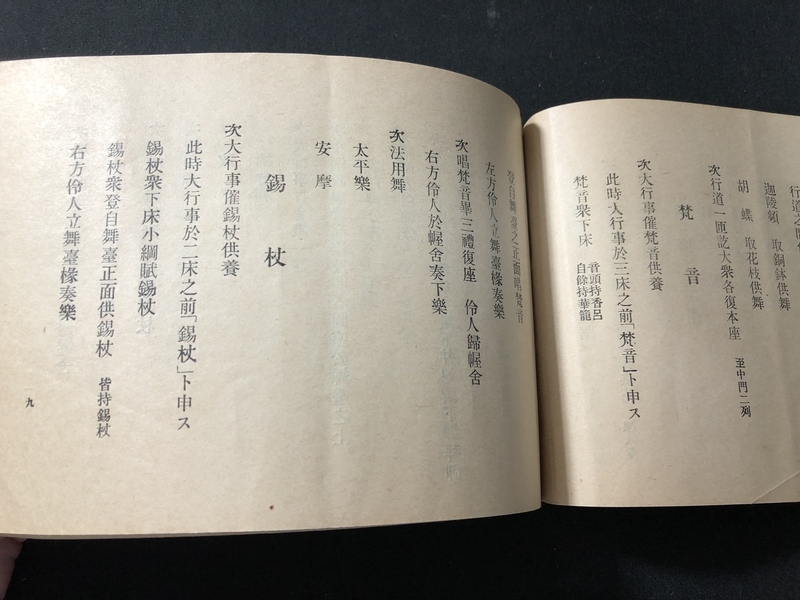 迦陵頻　取銅鉢供舞
胡　蝶　取花枝供舞
次行道一匝訖大衆各復本座　至中門二列
梵　音
次大行事催梵音供養
此時大行事於三床之前「梵音」ト申ス
梵音衆下床　音頭持香呂
自餘持華籠
登自舞臺之正面唱梵音
左方伶人立舞臺椽奏樂
次唱梵音畢三禮復座　伶人歸幄舍
右方伶人於幄舍奏下樂
次法用舞
太平樂
安　摩
錫　杖
次大行事催錫杖供養
此時大行事於二床之前「錫杖」ト申ス
錫杖衆下床小綱賦錫杖
錫杖衆登自舞臺正面供錫杖　皆持錫杖
右方伶人立舞臺椽奏樂
九